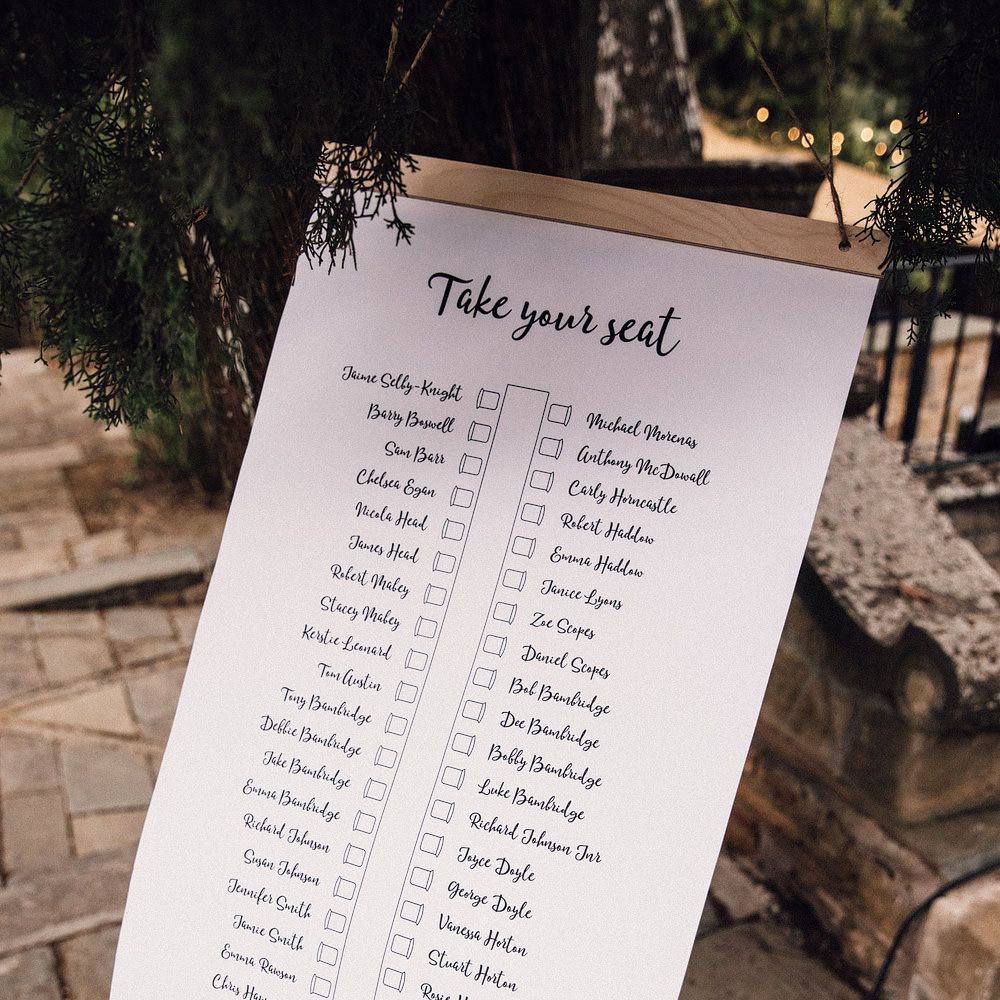 Take your seat
Jaime Selby-Knight
Barry Boswell
Sam Barr
Chelsea Egan
Nicola Head
James Head
Robert Mabey
Stacey Mabey
Kerstie Leonard
Tom Austin
Tony Bambridge
Debbie Bambridge
Jake Bambridge
Emma Bambridge
Richard Johnson
Susan Johnson
Jennifer Smith
Jamie Smith
Emma Rawson
Chris
Michael Morenas
Anthony McDowall
Carly Horncastle
Robert Haddow
Emma Haddow
Janice Lyons
Zoe Scopes
Daniel Scopes
Bob Bambridge
Dee Bambridge
Bobby Bambridge
Luke Bambridge
Richard Johnson Jnr
Joyce Doyle
George Doyle
Vanessa Horton
Stuart Horton
Rosie